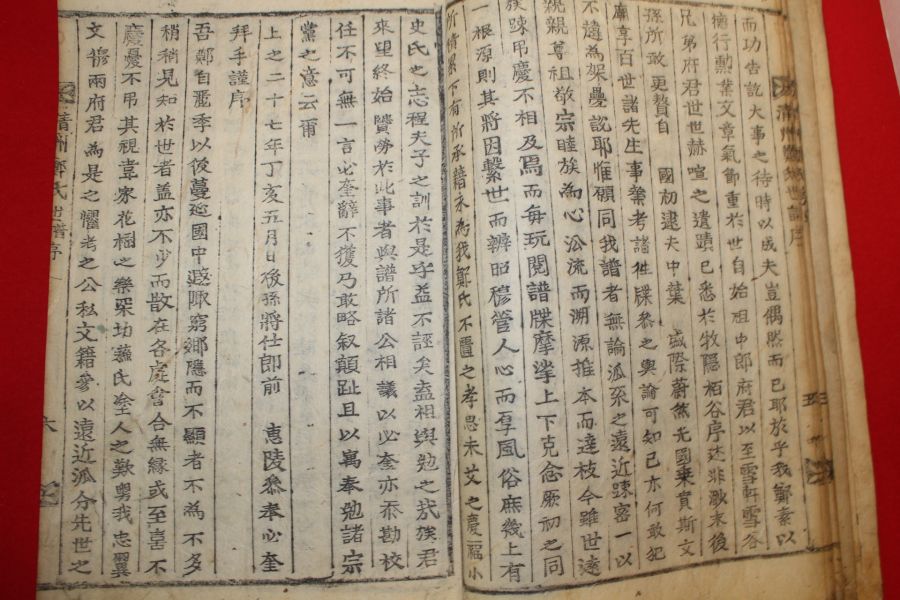 清州鄭氏世譜序
而功告訖大事之待時以成夫豈偶然而已耶於乎我鄭素以
行勳業文章氣節重於世自始祖中郎府君以至雪軒雪谷
兄弟府君世世赫喧之遺蹟已悉於牧隱栢谷序述非澈末後
孫所敢更贅自 國初逮夫中葉 際蔚然先國乘賁斯文
廟享百世諸先生事業考諸牒參之輿論可知已亦何敢犯
不韙為架疊說耶惟願同我譜者無論派系之遠近踈密一以
親親尊祖敬宗睦族為心沿流而溯源推本而達枝今雖世遠
族踈弔慶不相及焉而每玩閱譜牒摩挲上下克念厥初之同
一根源則其將因繫世而辨昭穆管人心而厚風俗庶幾上有
所積累下有所承藉永為我鄭氏不匱之孝思未艾之慶福小
史氏之志程夫子之訓於是乎益不誣矣盍相與勉之哉族君
來望終始賢勞於此事者與譜所諸公相議以必奎亦忝勘校
任不可無一言必奎辭不獲乃敢略叙顛趾且以寓奉勉諸宗
黨之意云爾
上之二十七年丁亥五月日後孫將仕郎前 惠陵參奉必奎
拜手謹序
吾鄭自麗季以後蔓延國中遐陬窮鄉隱而不顯者不為不多
稍稍見知於世者盖亦不少而散在各處會合無緣或至喜不
慶憂不弔其視韋家花樹之樂蘇氏塗人之歎輿我忠翼
文穆兩府君為是之懼考之公私文籍參以遠近派分先世之
清州鄭氏世譜序
六